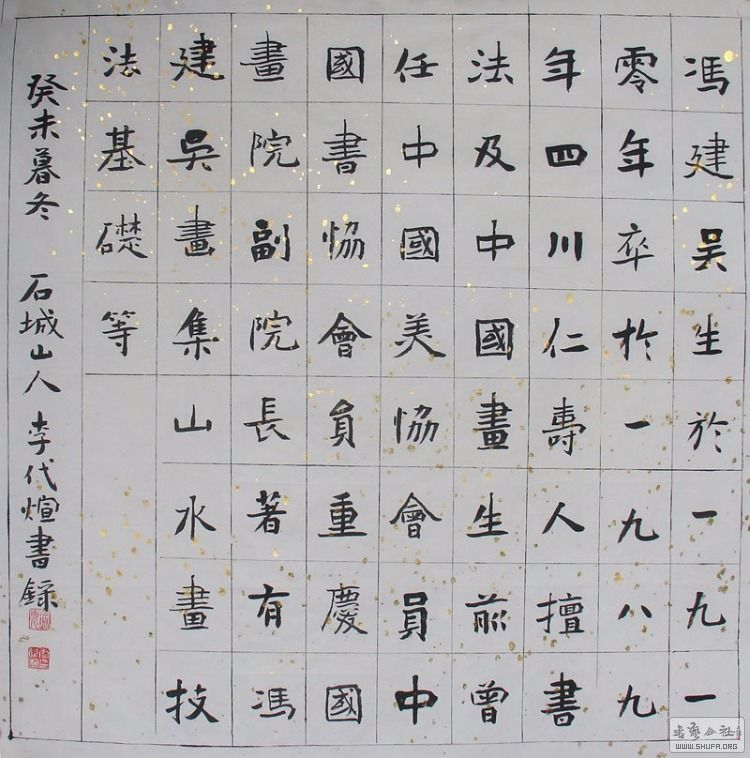 馮建吴生於一九一
零年卒於一九八九
年四川仁壽人擅書
法及中國畫生前曾
任中國美協會員中
國書協會員重慶國
畫院副院長著有馮
建吳畫集山水畫技
法基礎等
癸未暮冬 石城山人 李代煊書錄
WWW.SHUFA.ORG